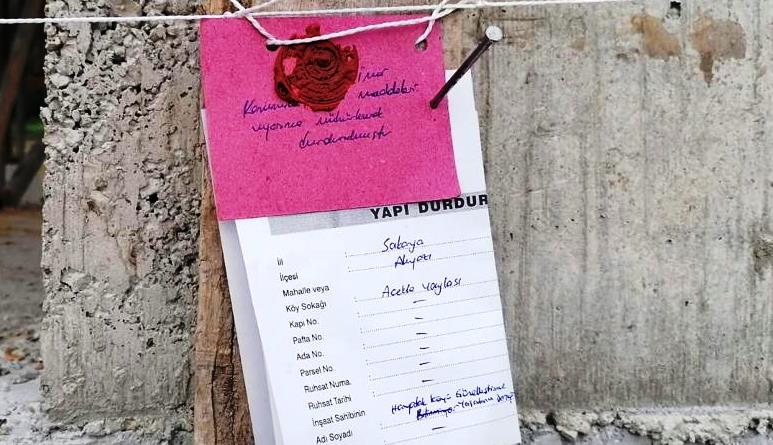 Kanununun İmar
maddeleri
uyarınca mühürlenerek
durdurulmuştur
YAPI DURDUR
İli : Sakarya
İlçesi : Akyazı
Mahalle veya
Köy Sokağı : Acelle Yaylası
Kapı No. : —
Pafta No. : —
Ada No. : —
Parsel No. : —
Ruhsat Numa. : —
Ruhsat Tarihi : —
İnşaat Sahibinin : Köyü Güzelleştirme
Adı Soyadı : —